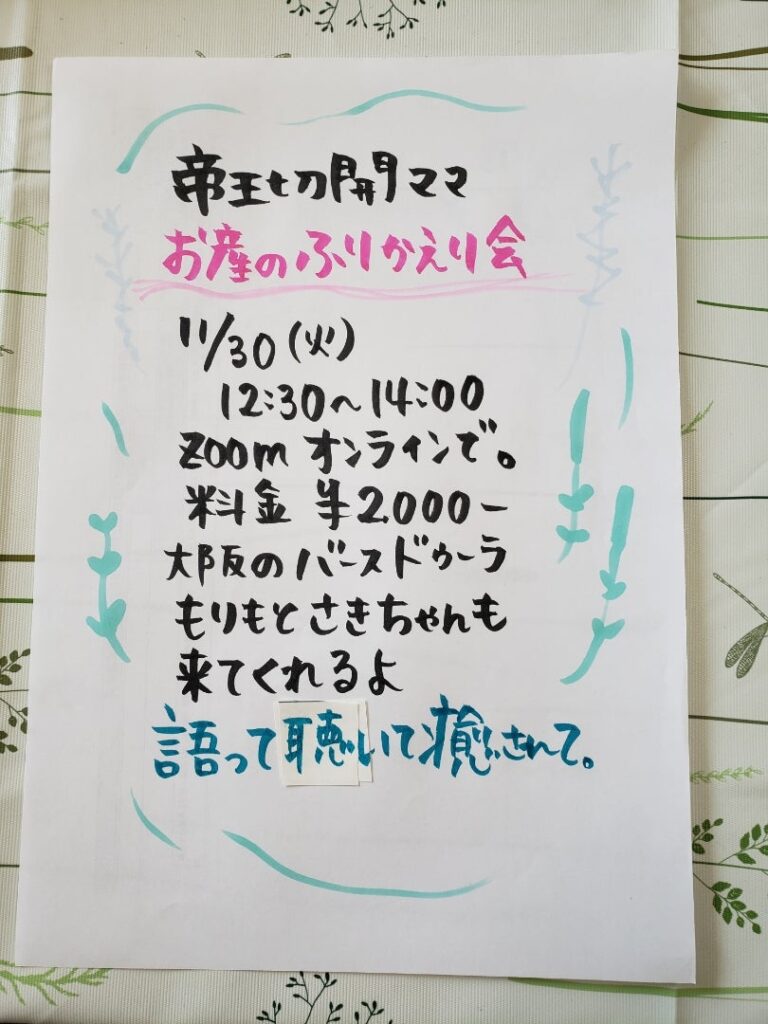 帝王切開ママ
お産のふりかえり会
11/30(火)
12:30～14:00
zoom オンラインで。
料金 ¥2.000－
大阪のバースドゥーラ
もりもとさきちゃんも
来てくれるよ
語って聴いて癒されて。